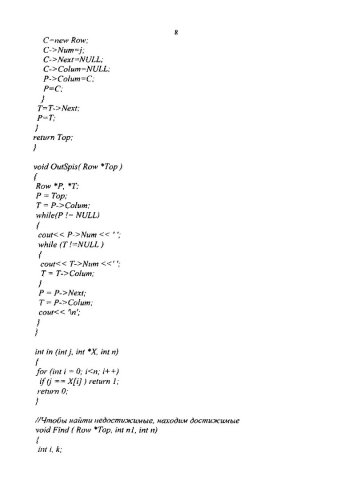 8
C=new Row;
C->Num=j;
C->Next=NULL;
C->Colum=NULL;
P->Colum=C;
P=C;
}
T=T->Next;
P=T;
}
return Top;
}
void OutSpis( Row *Top )
{
Row *P, *T;
P = Top;
T = P->Colum;
while(P != NULL)
{
cout<< P->Num << ' ';
while (T !=NULL )
{
cout<< T->Num <<' ';
T = T->Colum;
}
P = P->Next;
T = P->Colum;
cout<< '\n';
}
}
int in (int j, int *X, int n)
{
for (int i = 0; i<n; i++)
if (j == X[i] ) return 1;
return 0;
}
//Чтобы найти недостижимые, находим достижимые
void Find ( Row *Top, int n1, int n)
{
int i, k;